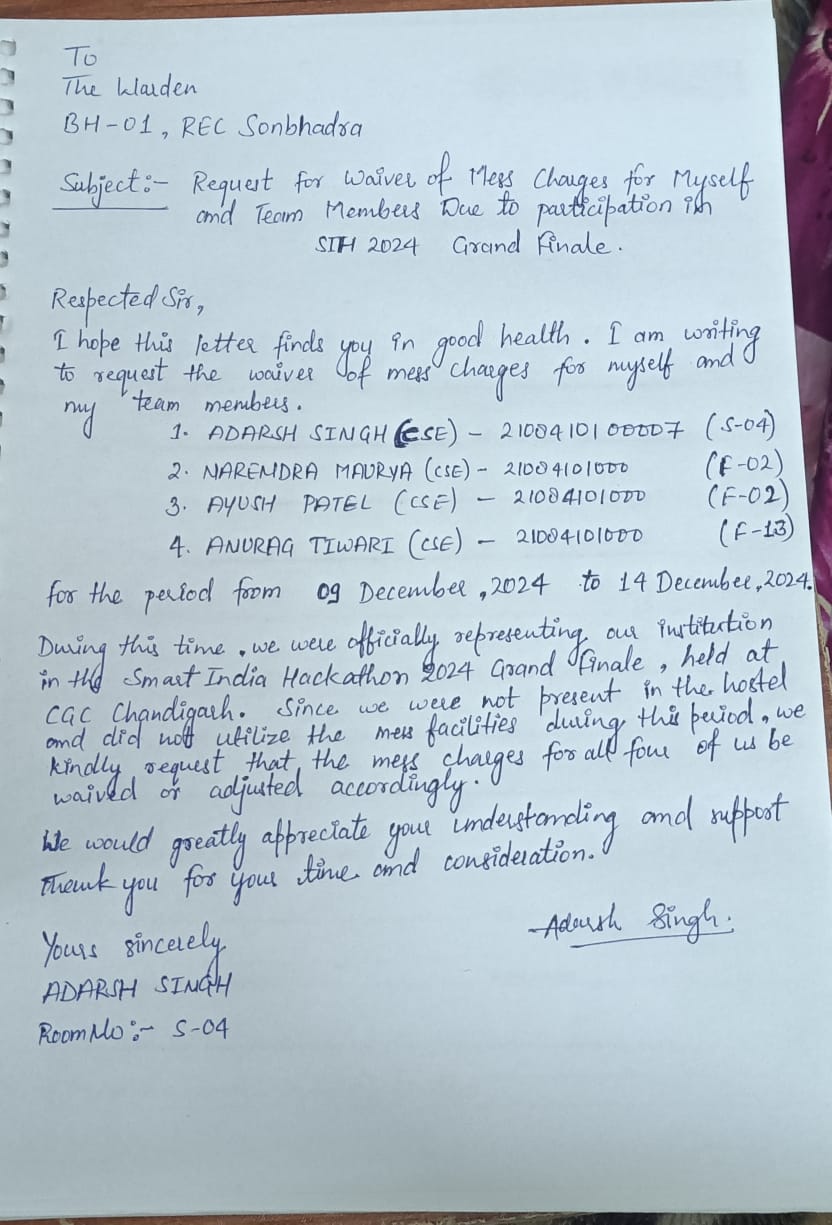 To
The Warden
BH-01, REC Sonbhadra
Subject:- Request for Waiver of Mess Charges for Myself
and Team Members Due to participation in
SIH 2024 Grand Finale.
Respected Sir,
I hope this letter finds you in good health. I am writing
to request the waiver of mess charges for myself and
my team members.
1. ADARSH SINGH (CSE) - 2100410100007 (S-04)
2. NARENDRA MAURYA (CSE) - 21004101000 (F-02)
3. AYUSH PATEL (CSE) - 21004101000 (F-02)
4. ANURAG TIWARI (CSE) - 21004101000 (F-13)
for the period from 09 December, 2024 to 14 December, 2024.
During this time, we were officially representing our institution
in the Smart India Hackathon 2024 Grand Finale, held at
CGC Chandigarh. Since we were not present in the hostel
and did not utilize the mess facilities during this period, we
kindly request that the mess charges for all four of us be
waived or adjusted accordingly.
We would greatly appreciate your understanding and support
Thank you for your time and consideration.
-Adarsh Singh.
Yours sincerely
ADARSH SINGH
Room No:- S-04